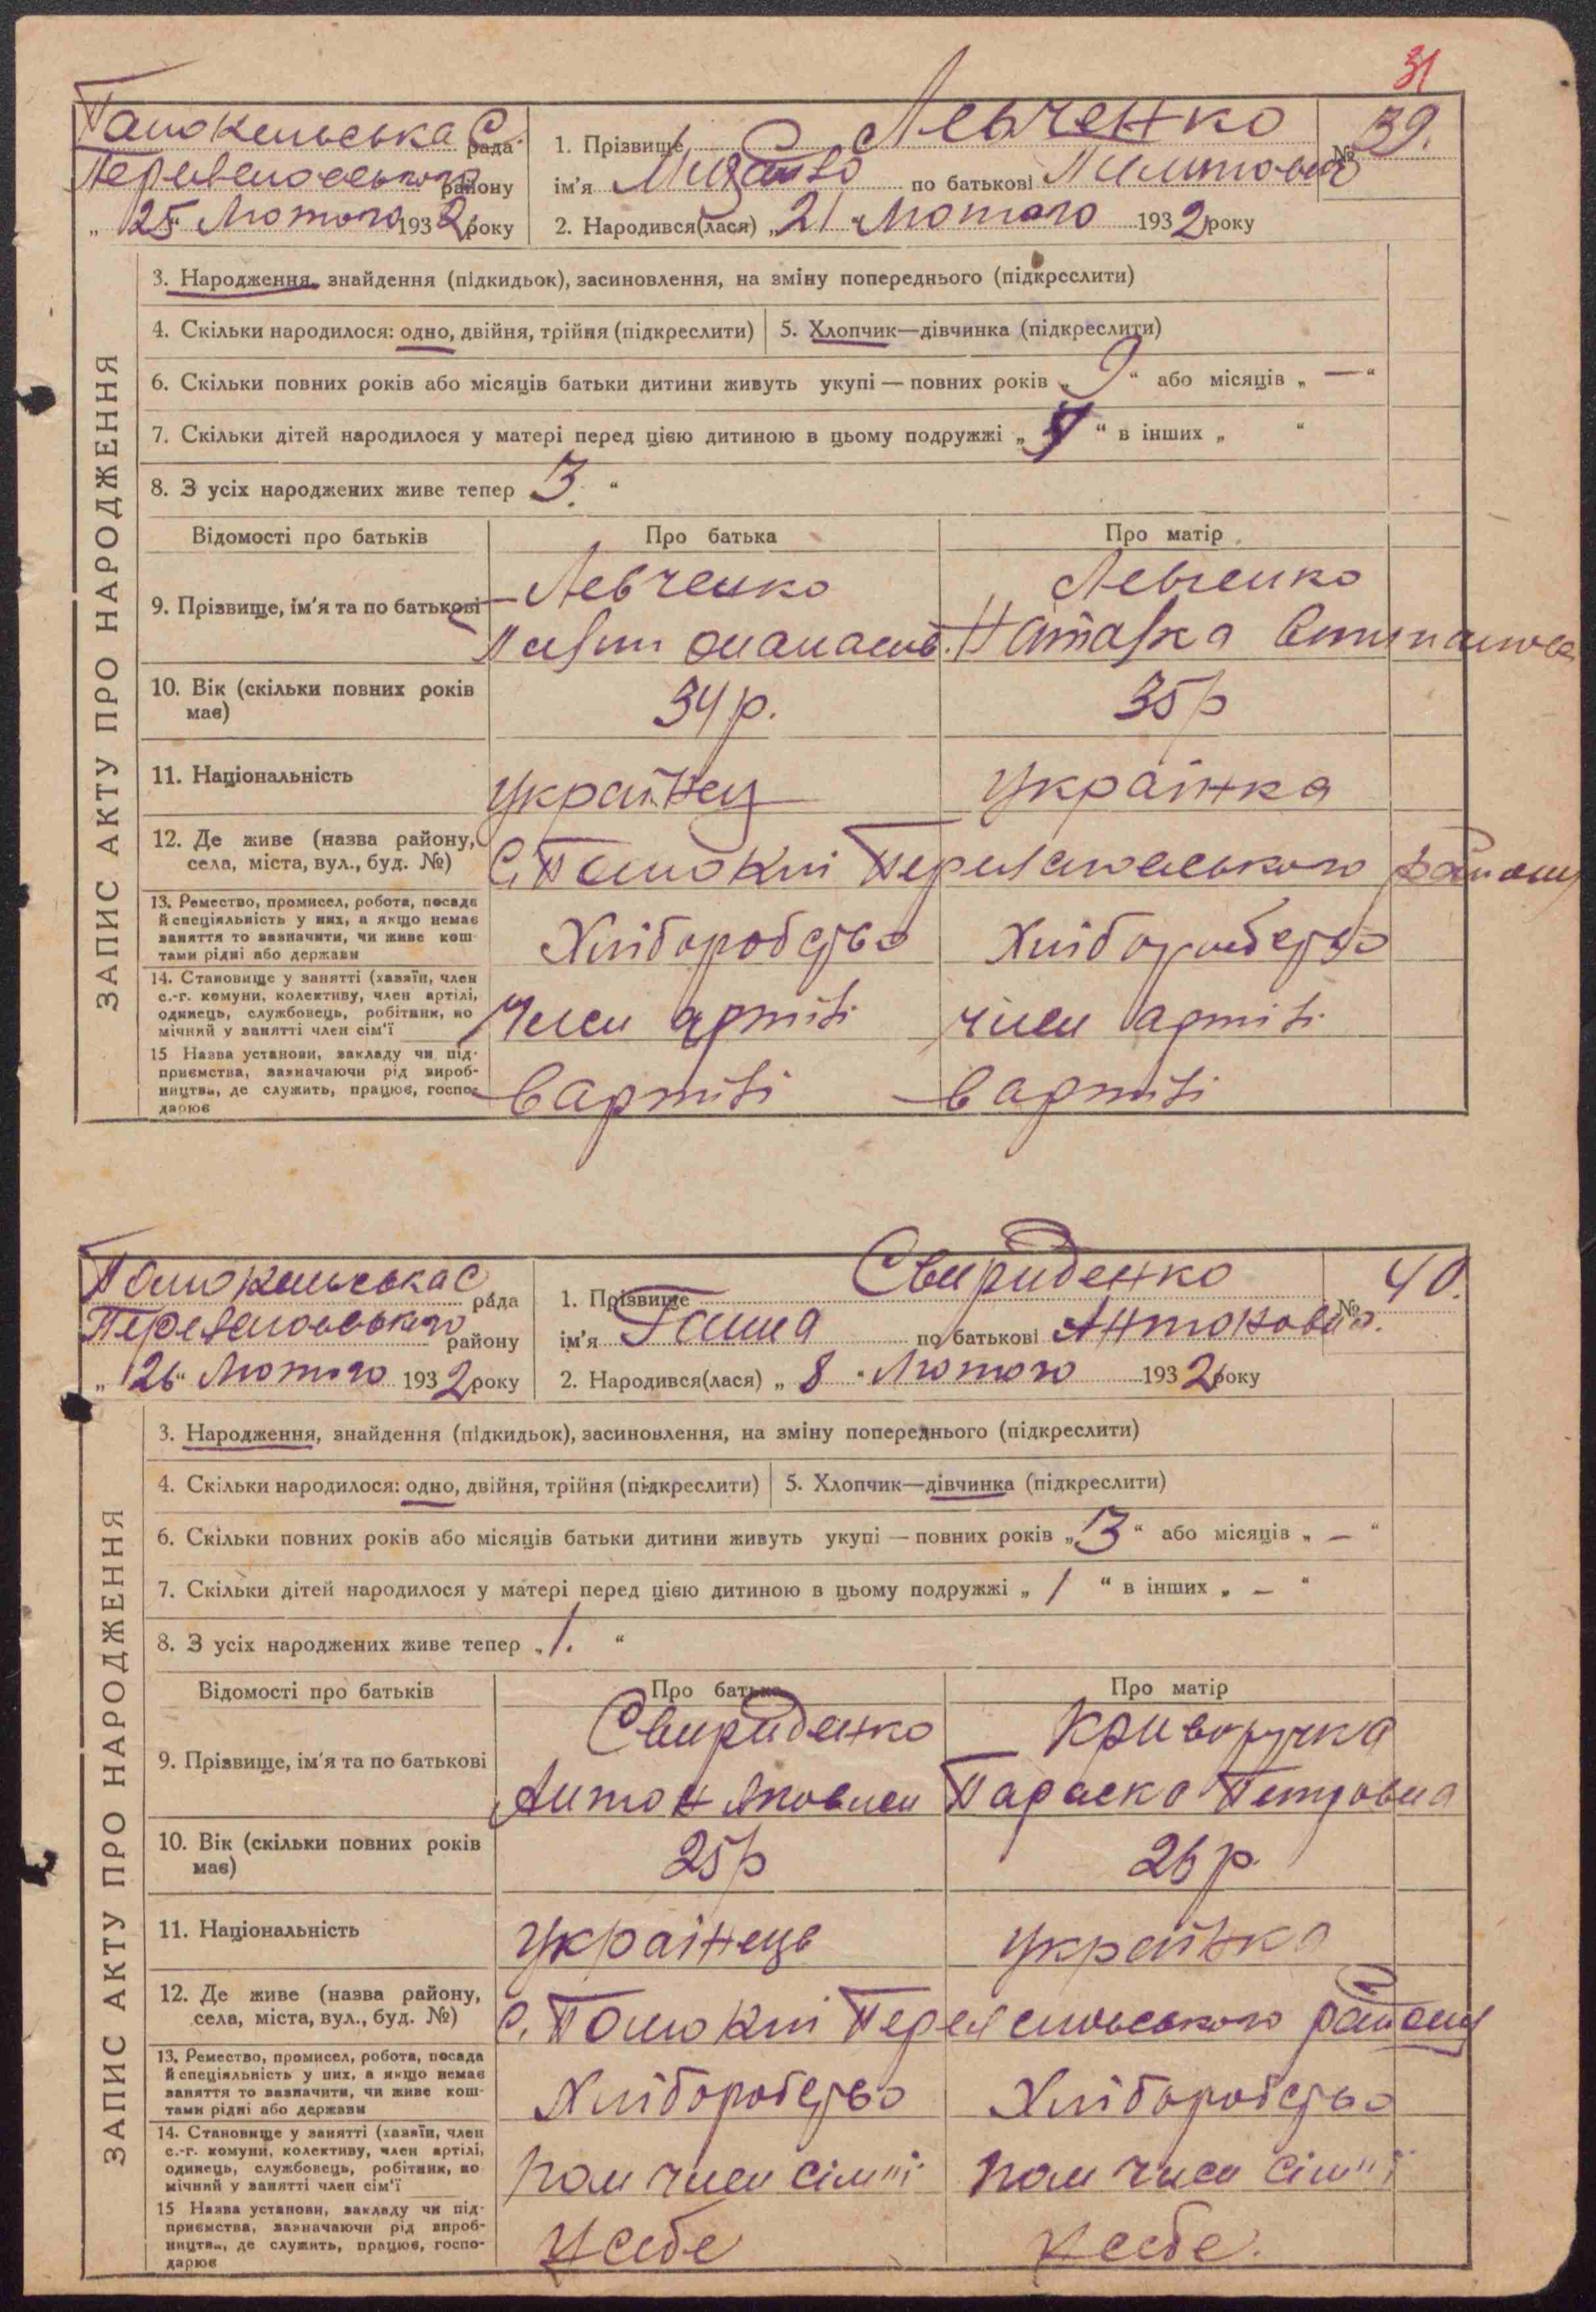 31
Помокельська С. рада
Переяславського району
„25“ Лютого 1932 року
1. Прізвище Левченко
№ 39.
ім'я по батькові
2. Народився(лася) „21“ Лютого 1932 року
ЗАПИС АКТУ ПРО НАРОДЖЕННЯ
3. Народження, знайдення (підкидьок), засиновлення, на зміну попереднього (підкреслити)
4. Скільки народилося: одно, двійня, трійня (підкреслити) 5. Хлопчик—дівчинка (підкреслити)
6. Скільки повних років або місяців батьки дитини живуть укупі — повних років „9“ або місяців „—“
7. Скільки дітей народилося у матері перед цією дитиною в цьому подружжі „ “ в інших „ “
8. З усіх народжених живе тепер „3.“
Відомості про батьків Про батька Про матір
9. Прізвище, ім'я та по батькові
Левченко Левченко
Наталка
10. Вік (скільки повних років має) 34 р. 35 р
11. Національність українец українка
12. Де живе (назва району, села, міста, вул., буд. №) С. Помоклі Переяславського району
13. Ремество, промисел, робота, посада й спеціяльність у них, а якщо немає заняття то зазначити, чи живе коштами рідні або держави
Хліборобство Хліборобство
14. Становище у занятті (хазяїн, член с.-г. комуни, колективу, член артілі, одинець, службовець, робітник, помічний у занятті член сім'ї
Член артілі член артілі
15 Назва установи, закладу чи підприємства, зазначаючи рід виробництва, де служить, працює, господарює
В артілі В артілі
Помокельська С рада
Переяславського району
„26“ Лютого 1932 року
1. Прізвище Свириденко
№ 40.
ім'я Ганна по батькові Антоновна.
2. Народився(лася) „8“ Лютого 1932 року
ЗАПИС АКТУ ПРО НАРОДЖЕННЯ
3. Народження, знайдення (підкидьок), засиновлення, на зміну попереднього (підкреслити)
4. Скільки народилося: одно, двійня, трійня (підкреслити) 5. Хлопчик—дівчинка (підкреслити)
6. Скільки повних років або місяців батьки дитини живуть укупі — повних років „3“ або місяців „—“
7. Скільки дітей народилося у матері перед цією дитиною в цьому подружжі „1“ в інших „—“
8. З усіх народжених живе тепер „1.“
Відомості про батьків Про батька Про матір
9. Прізвище, ім'я та по батькові
Свириденко Криворучка
Антон Яковлев Параска Петровна
10. Вік (скільки повних років має) 25 р 26 р.
11. Національність українець українка
12. Де живе (назва району, села, міста, вул., буд. №) С. Помоклі Переяславського району
13. Ремество, промисел, робота, посада й спеціяльність у них, а якщо немає заняття то зазначити, чи живе коштами рідні або держави
Хліборобство Хліборобство
14. Становище у занятті (хазяїн, член с.-г. комуни, колективу, член артілі, одинець, службовець, робітник, помічний у занятті член сім'ї
пом член сім"ї пом член сім"ї
15 Назва установи, закладу чи підприємства, зазначаючи рід виробництва, де служить, працює, господарює
У себе У себе.